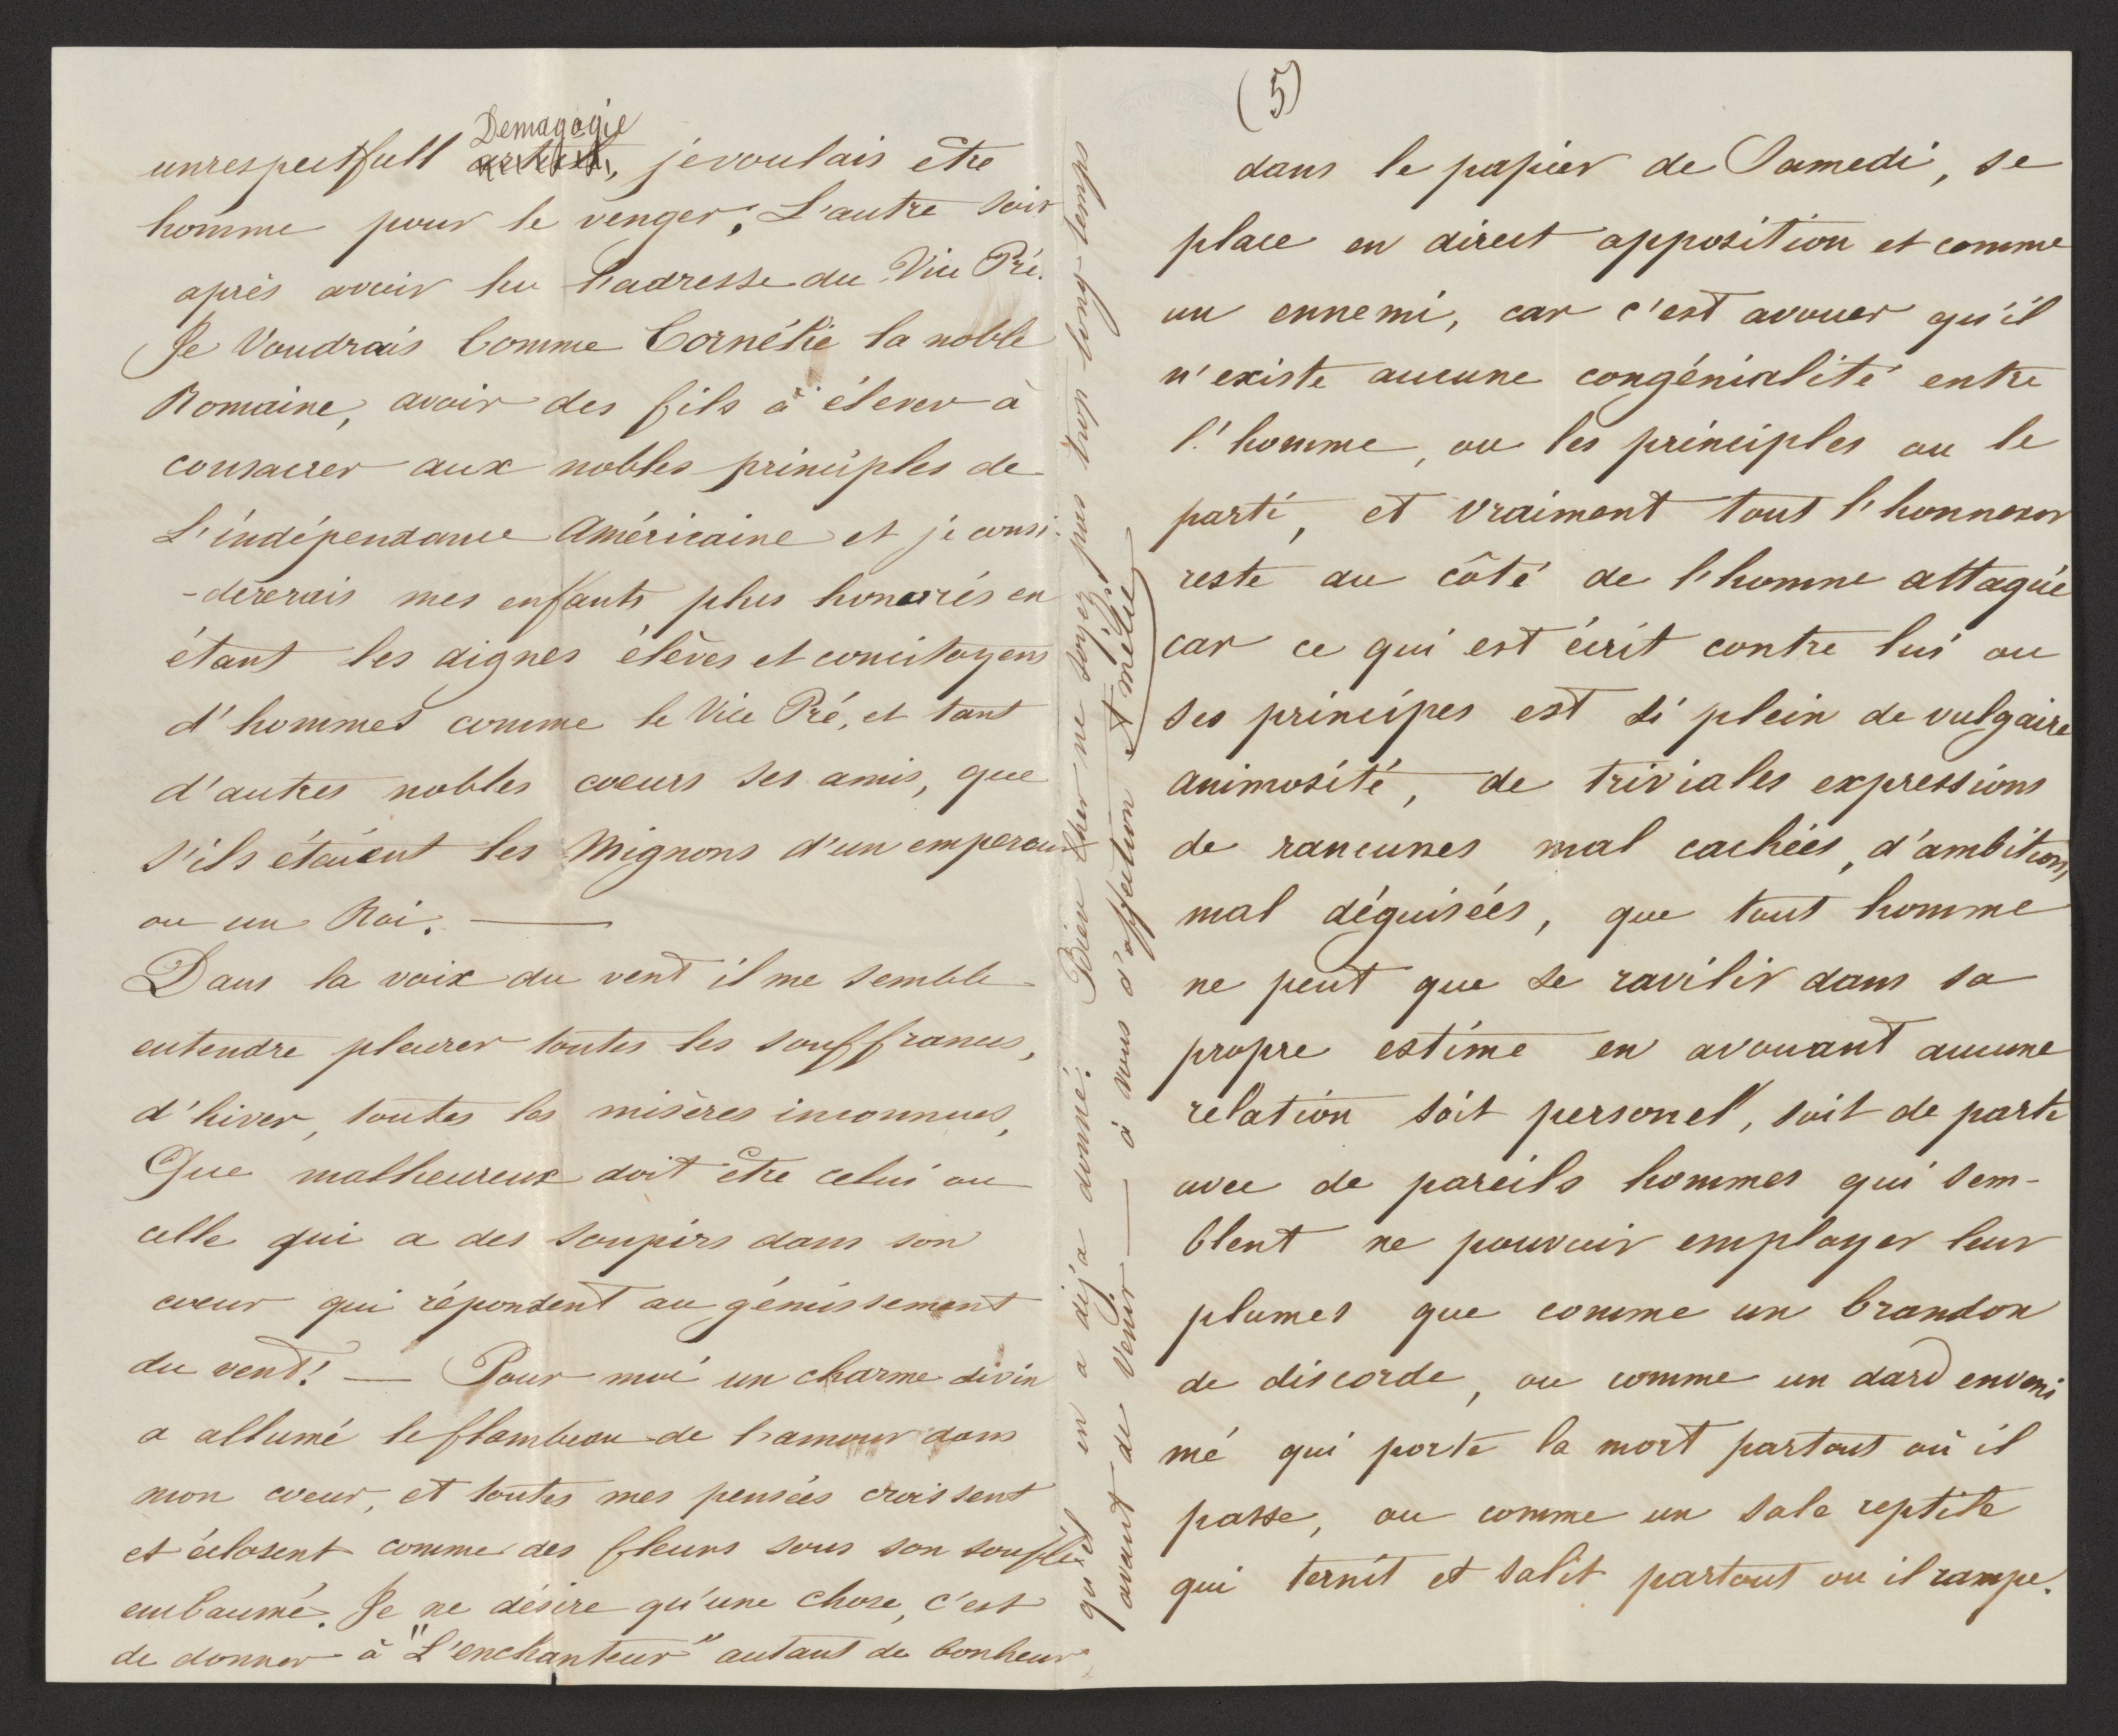 unrespectfull Demagogie, je voulais être
homme pour le venger; L'autre soir
après avoir lu l'adresse du Vice Pré.
Je Voudrais Comme Cornélie la noble
Romaine, avoir des fils à élever à
consacrer aux nobles principles de
L'indépendance Américaine et je consi-
-dèrerais mes enfants plus honorés en
étant les dignes élèves et concitoyens
d'hommes comme le Vice Pré, et tant
d'autres nobles coeurs ses amis, que
s'ils étaient les Mignons d'un empereur
ou un Roi. —
Dans la voix du vent il me semble
entendre pleurer toutes les souffrances,
d'hiver, toutes les misères inconnues,
Que malheureux doit être celui ou
celle qui a des soupirs dans son
coeur qui répondent au gémissement
du vent! — Pour moi un charme divin
a allumé le flambeau de l'amour dans
mon coeur, et toutes mes pensées croissent
et éclosent comme des fleurs sous son souffle
embaumé. Je ne désire qu'une chose, c'est
de donner à "L'enchanteur" autant de bonheur
qu'il en a déja donné. Bien Cher ne soyez pas trop long-temps
avant de venir — à vous d'affection Amélie
(5)
dans le papier de Samedi, se
place en direct apposition et comme
un ennemi, car c'est avouer qu'il
n'existe aucune congénialité entre
l'homme, ou les principles ou le
parti, et vraiment tout l'honneur
reste au côté de l'homme attaqué
car ce qui est écrit contre lui ou
ses principes est si plein de vulgaire
animosité, de triviales expressions
de rancunes mal cachées, d'ambitions
mal déguisées, que tout homme
ne peut que se ravilir dans sa
propre estime en avouant aucune
relation soit personel, soit de parti
avec de pareils hommes qui sem-
blent ne pouvoir employer leur
plumes que comme un brandon
de discorde, ou comme un dard enveni
mé qui porte la mort partout où il
passe, ou comme un sale reptile
qui ternit et salit partout ou il rampe.